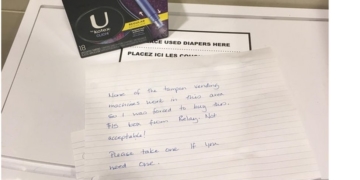 U
by Kotex
18
PLACE USED DIAPERS HERE
PLACEZ ICI LES
None of the tampon vending
machines work in this area
so I was forced to buy this
$10 box from Relay. Not
acceptable!
Please take one if you
need one.